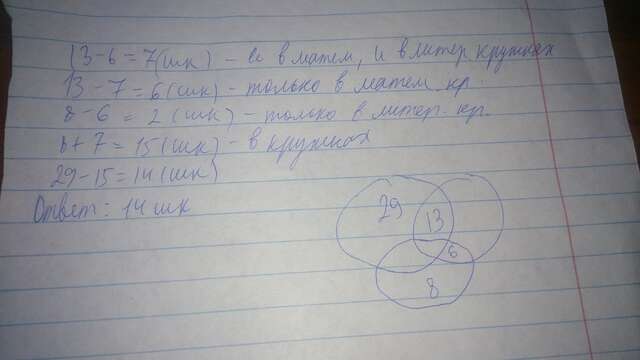 13-6=7(шк) - и в матем, и в литер. кружках
13-7=6(шк) - только в матем. кр.
8-6=2(шк) - только в литер. кр.
8+7=15(шк) - в кружках
29-15=14(шк)
Ответ: 14 шк
29
13
6
8